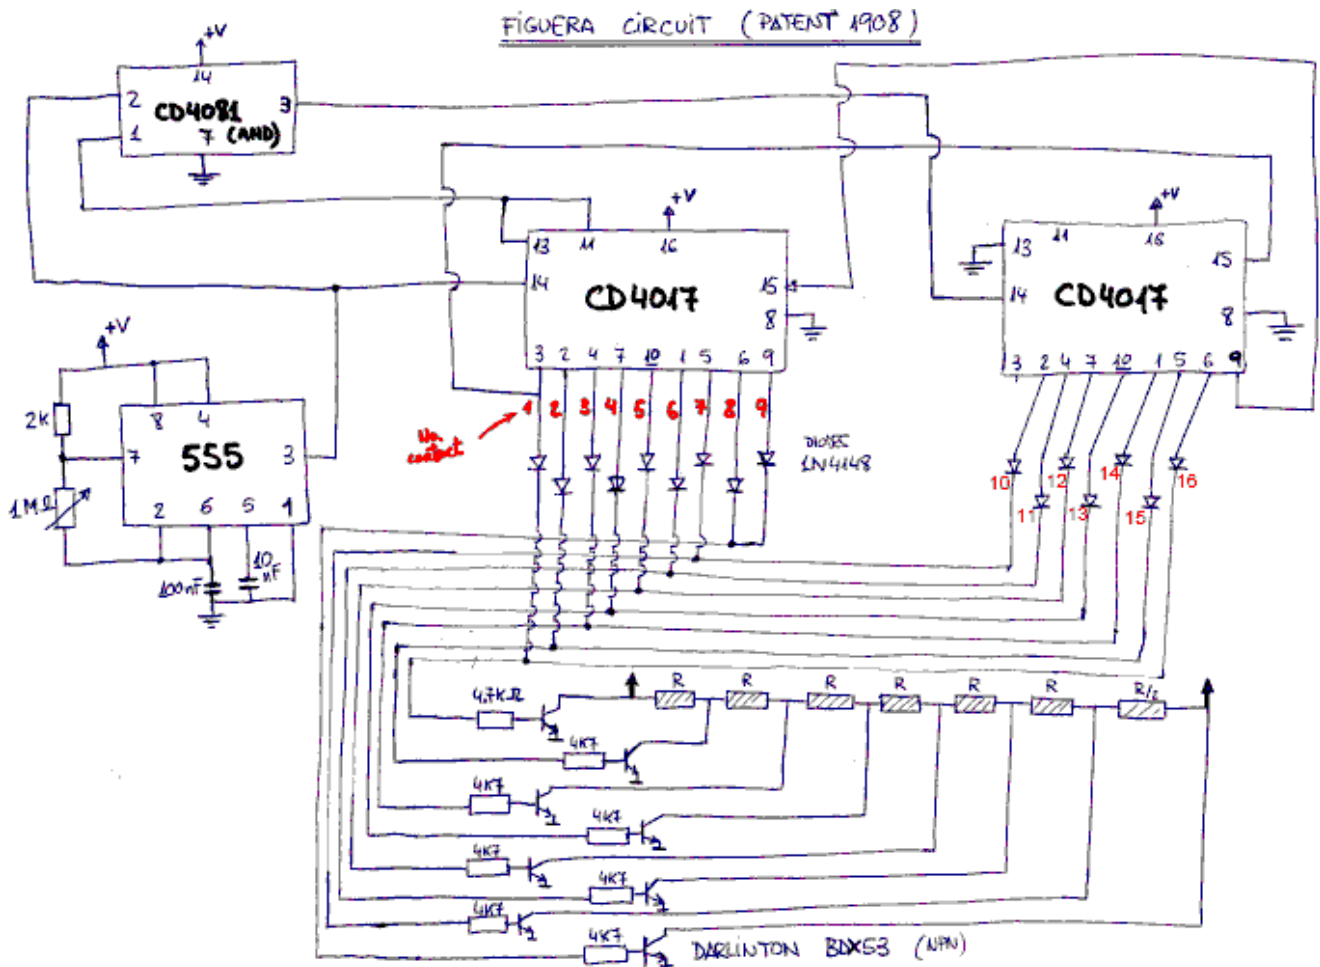 FIGUERA CIRCUIT (PATENT 1908)
+V
14
2
CD4081
3
1
7 (AND)
+V
13
11
16
14
CD4017
15
8
3 2 4 7 10 1 5 6 9
+V
13
11
16
15
14
CD4017
8
3 2 4 7 10 1 5 6 9
+V
2K
8
4
7
555
3
1MΩ
2
6
5
1
100nF
10
nF
1 2 3 4 5 6 7 8 9
No
contact
DIODES
1N4148
10
11
12
13
14
15
16
4.7KΩ
R
R
R
R
R
R
R/2
4K7
4K7
4K7
4K7
4K7
4K7
4K7
DARLINTON BDX53 (NPN)